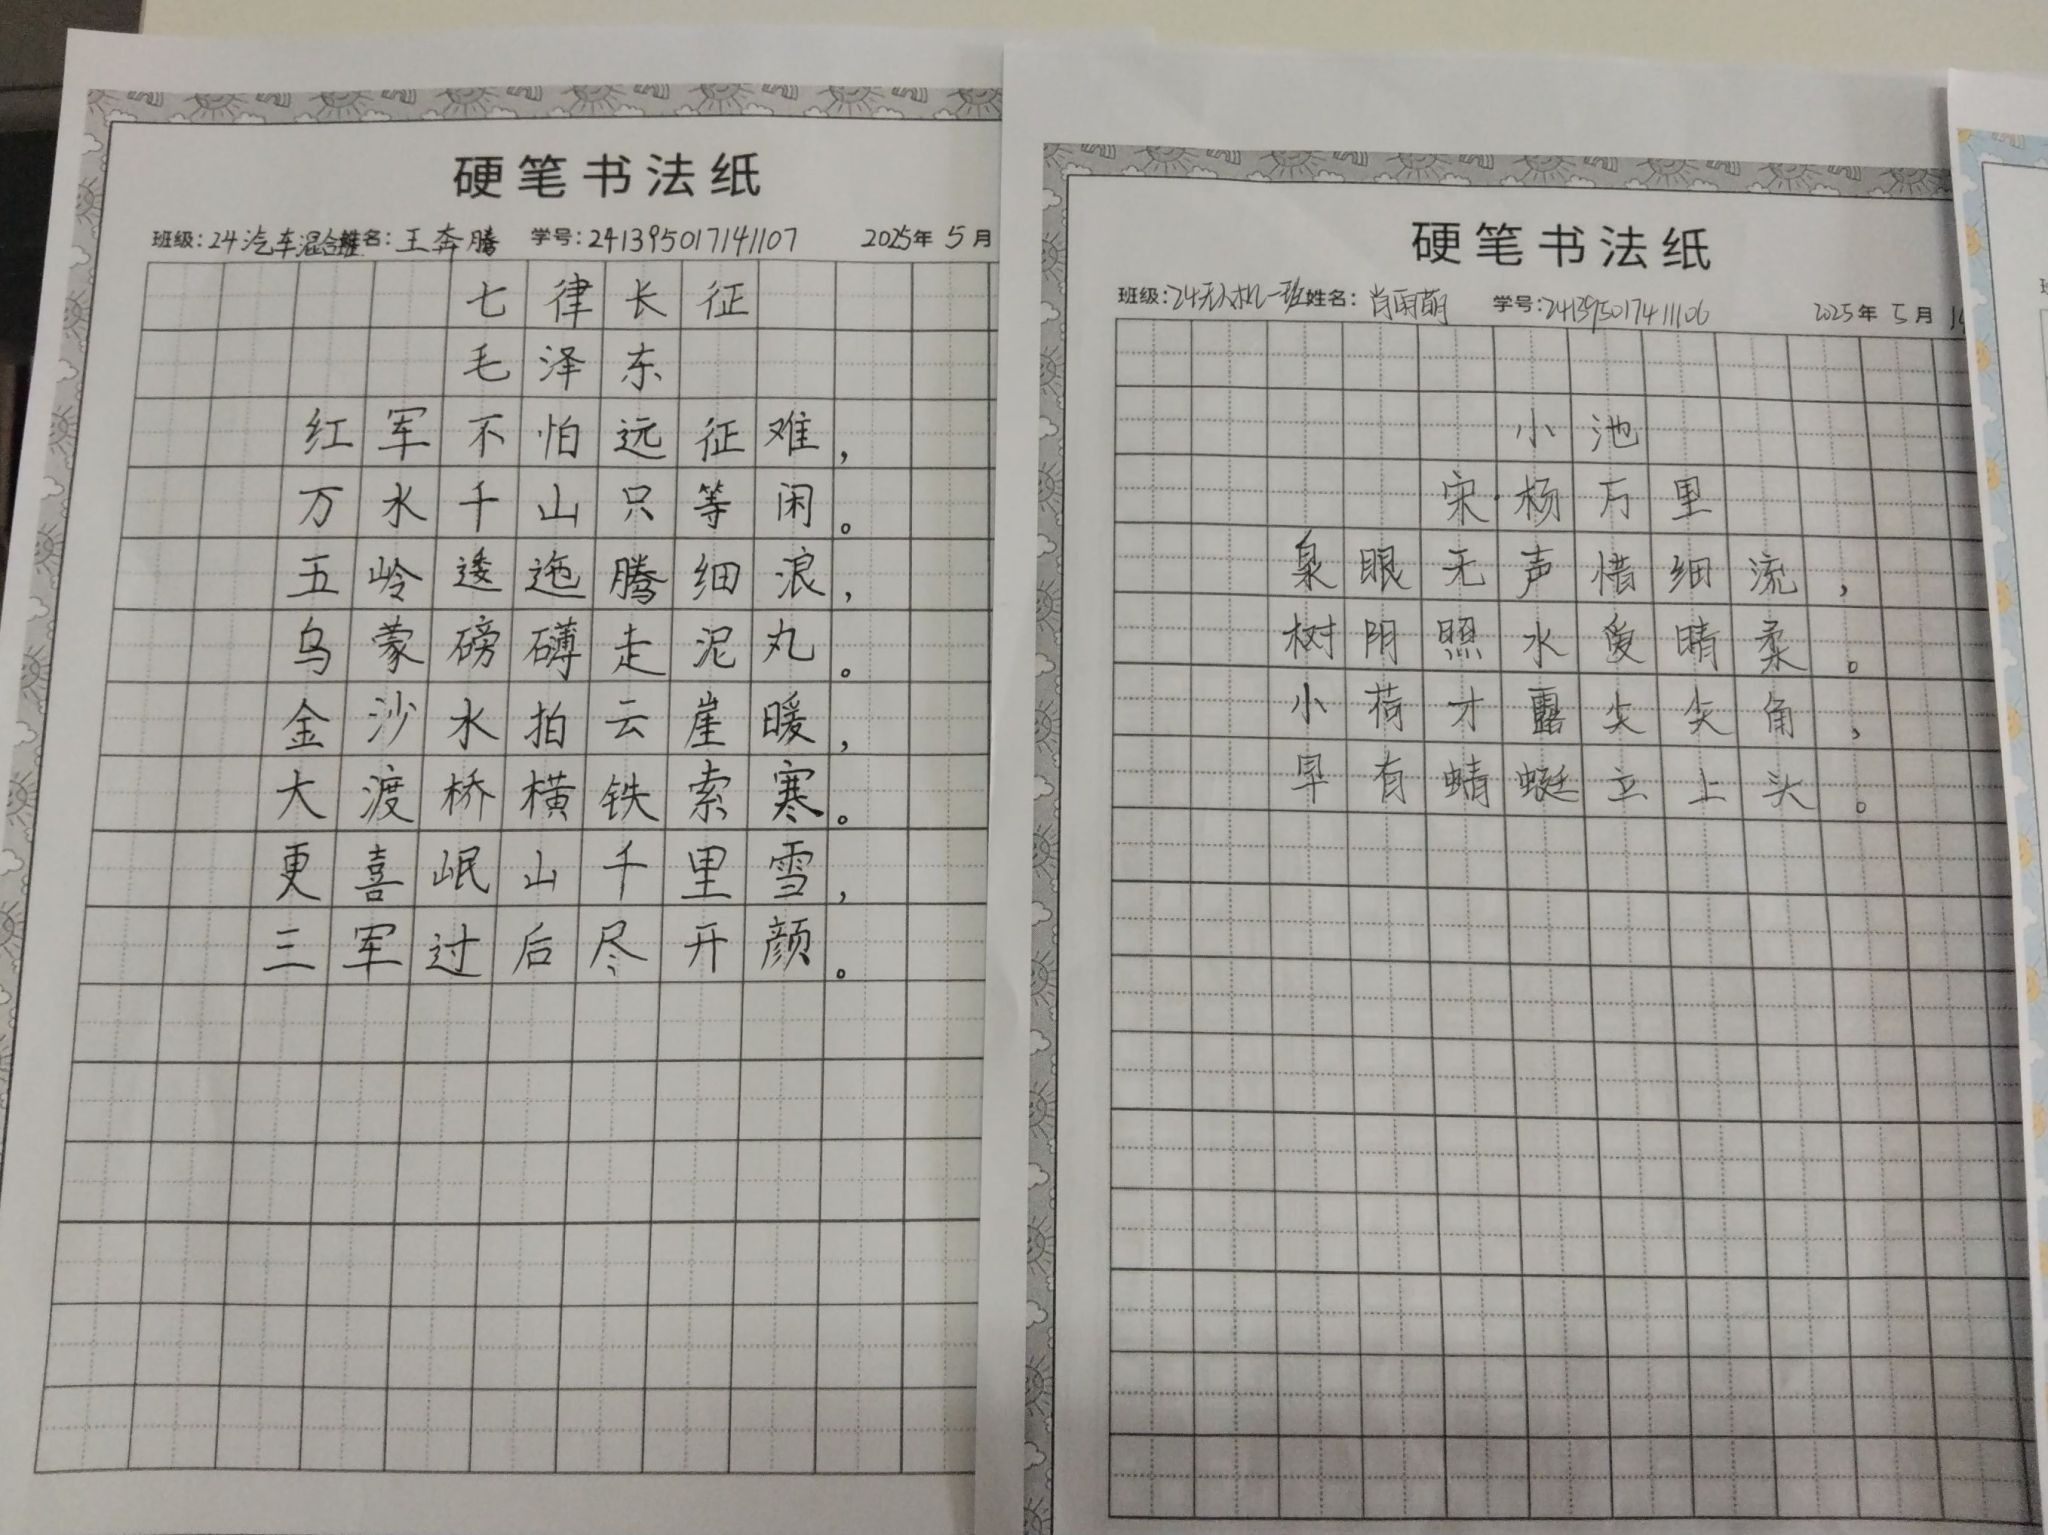 硬笔书法纸
班级:24汽车混合班姓名:王奔腾 学号:241395017141107 2025年5月
七律长征
毛泽东
红军不怕远征难,
万水千山只等闲。
五岭逶迤腾细浪,
乌蒙磅礴走泥丸。
金沙水拍云崖暖,
大渡桥横铁索寒。
更喜岷山千里雪,
三军过后尽开颜。
硬笔书法纸
班级:24无人机一班姓名:肖雨萌 学号:241395017411106 2025年5月
小池
宋·杨万里
泉眼无声惜细流,
树阴照水爱晴柔。
小荷才露尖尖角,
早有蜻蜓立上头。